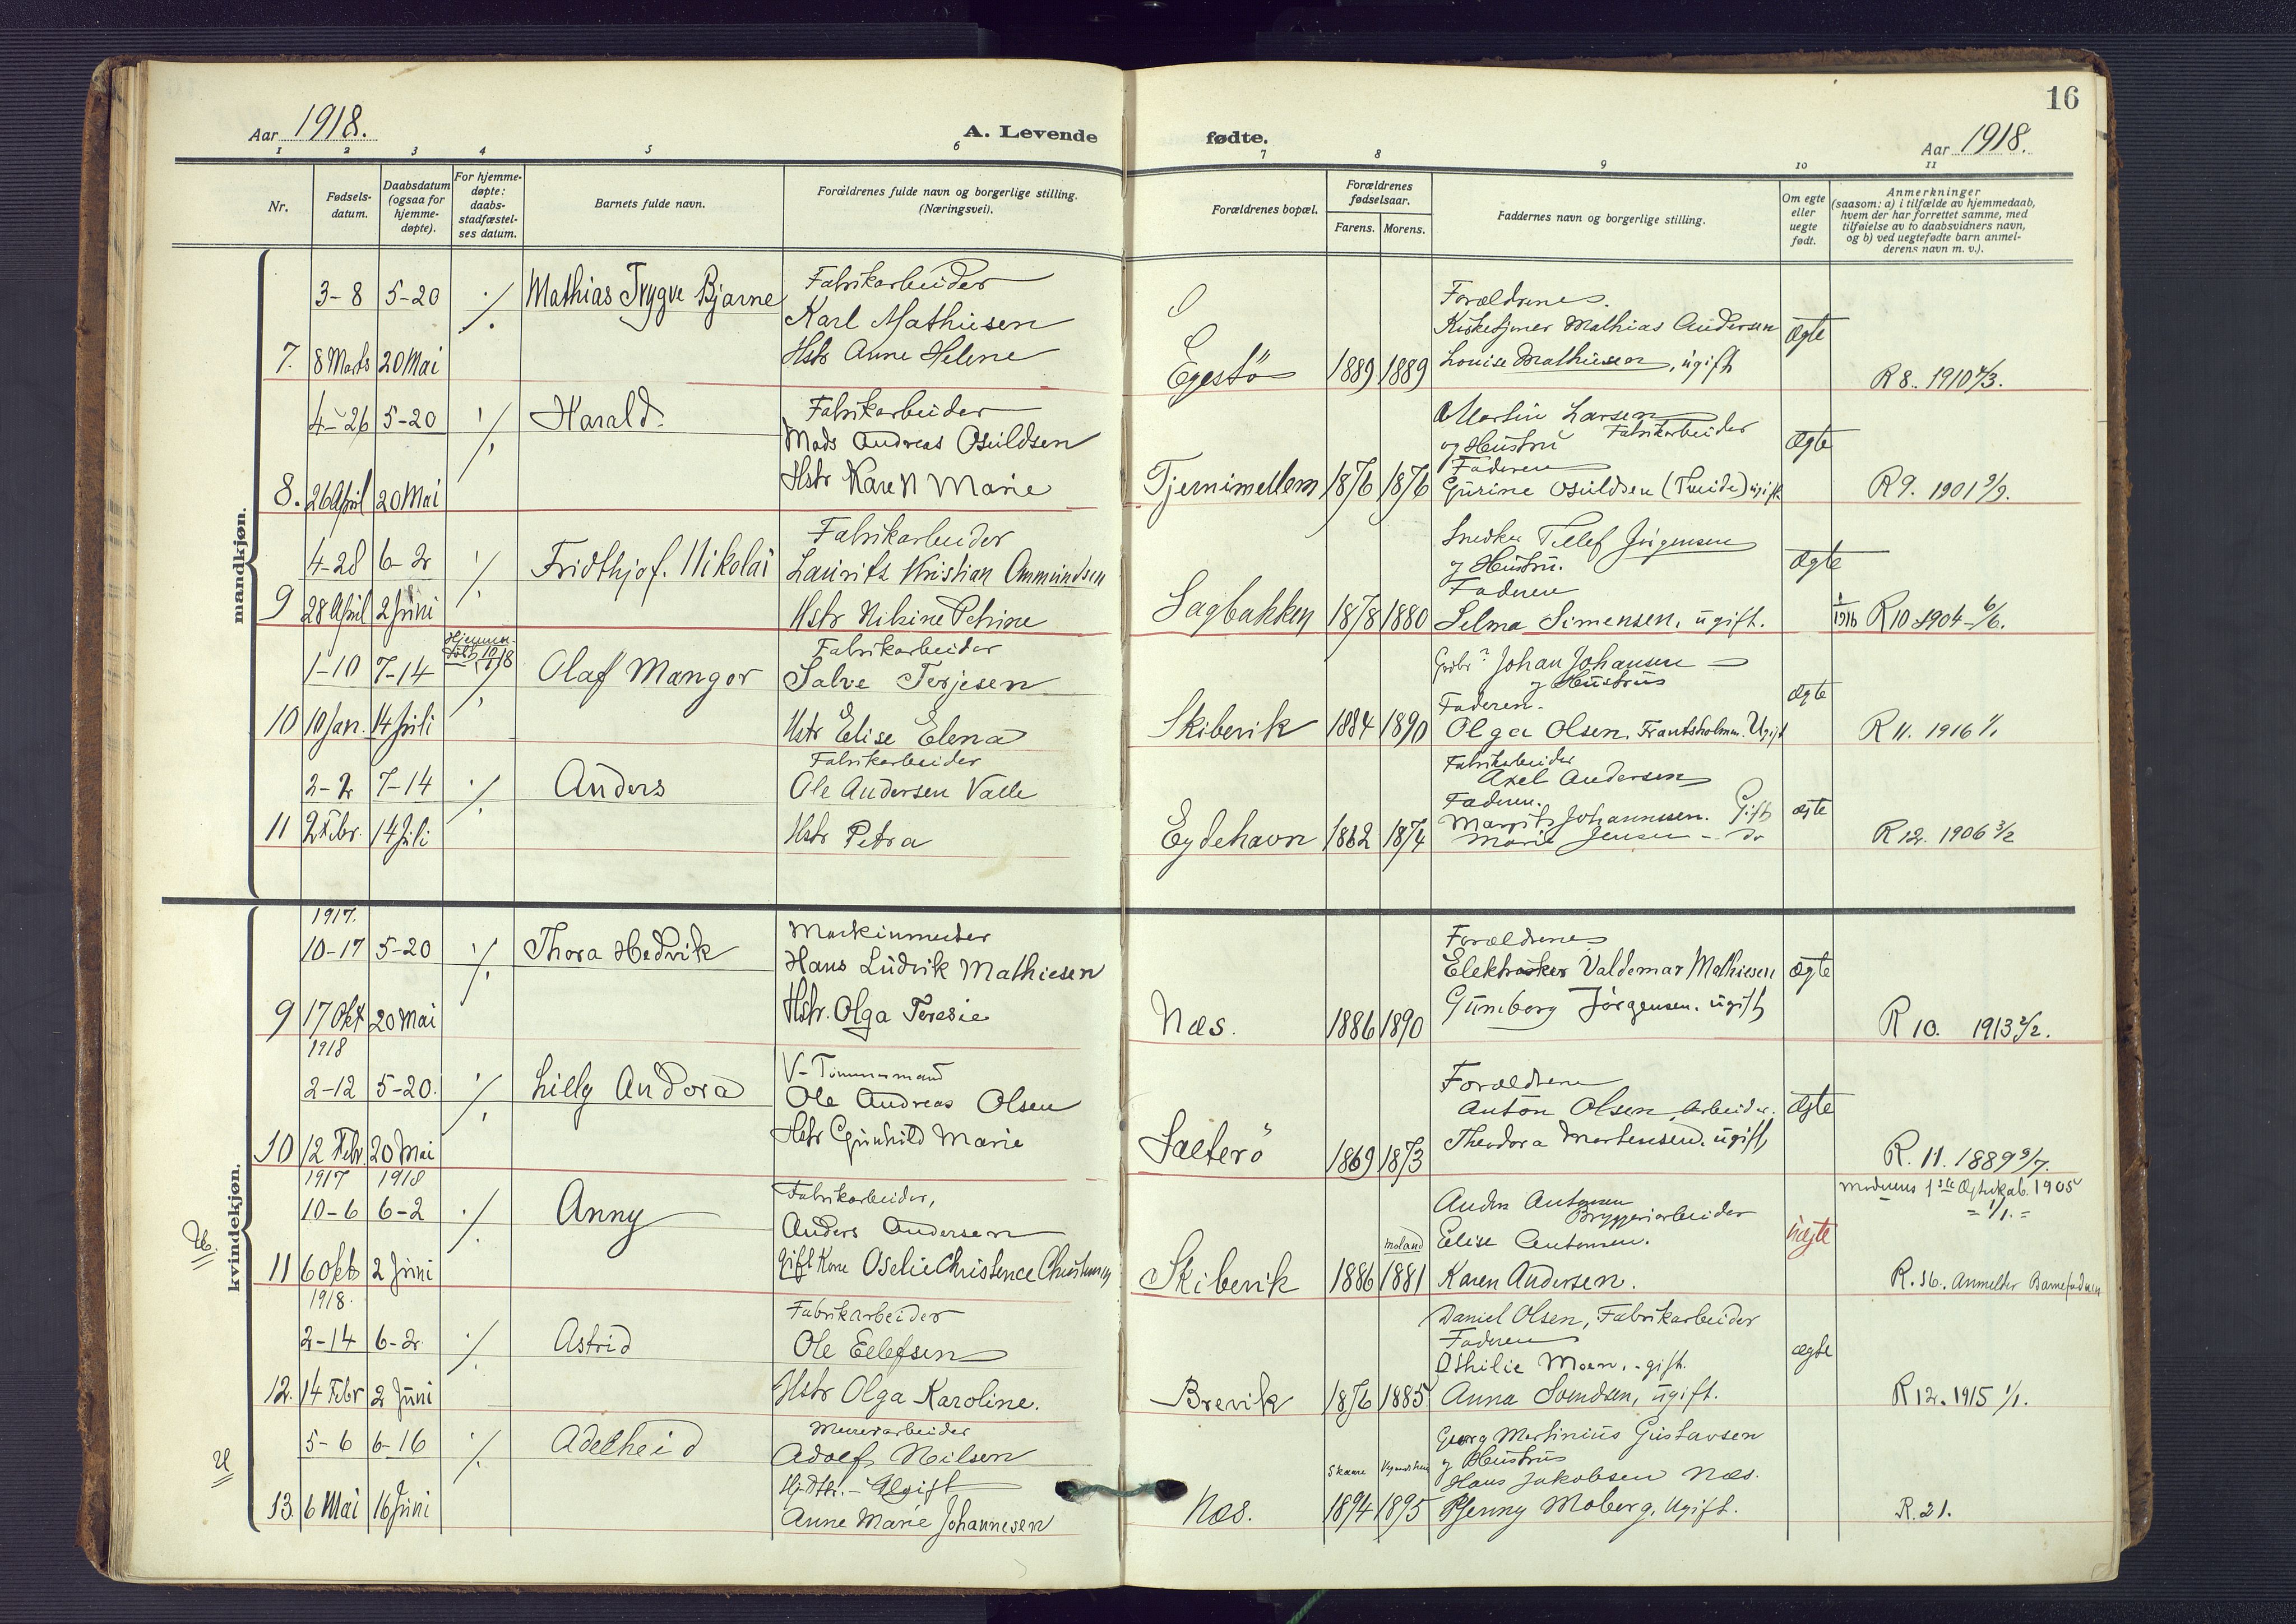 Aar 1918.
A. Levende
fødte.
16
Aar 1918.
1 2 3 4 5 6 7 8 9 10 11
Nr.
Fødsels-
datum.
Daabsdatum
(ogsaa for
hjemme-
døpte).
For hjemme-
døpte:
daabs-
stadfæstel-
ses datum.
Barnets fulde navn.
Forældrenes fulde navn og borgerlige stilling.
(Næringsvei).
Forældrenes bopæl.
Forældrenes
fødselsaar.
Farens. Morens.
Faddernes navn og borgerlige stilling.
Om egte
eller
uegte
født.
Anmerkninger
(saasom: a) i tilfælde av hjemmedaab,
hvem der har forrettet samme, med
tilføielse av to daabsvidners navn,
og b) ved uegtefødte barn anmel-
derens navn m. v.).
mandkjøn.
3-8 5-20 ./. Mathias Trygve Bjarne Fabrikarbeider
Karl Mathiesen
7. 8 Marts 20 Mai Hstr Anne Helene
Egestö 1889 1889
Forældrene.
Kirketjener Mathias Andersen
Louise Mathiesen, ugift
Ægte
R 8. 1910
4-26 5-20 ./. Harald. Fabrikarbeider
Mads Andreas Osuldsen
8. 26 April 20 Mai Hstr Karen Marie
Tjernimellem 1876 1876
Martin Larsen
Fabrikarbeider
og Hustru
Faderen
Gurine Osuldsen ugift
Ægte
R 9. 1901 9/9.
4-28 6-2 ./. Fridthjof. Nikolai Fabrikarbeider
Laurits Kristian Ommundsen
9 28 April 2 Juni Hstr Nikine Petrine
Sagbakken 1878 1880
Snedker Tellef Jörgensen
og Hustru.
Faderen
Selma Simensen, ugift.
Ægte
R 10 1904 6/6.
1-10 7-14 Hjemme-
Olaf Mangor Fabrikarbeider
Salve Terjesen
10 10 Jan. 14 Juli Hstr Elise Elena
Skibevik 1884 1890
Johan Johansen
og Hustru
Faderen.
Olga Olsen. Frantsholmen. Ugift
Ægte
R 11. 1916 1/1
2-2 7-14 ./. Anders Fabrikarbeider
Ole Andersen Valle
11 2 Febr. 14 Juli Hstr Petra
Eydehavn 1862 1874
Fabrikarbeider
Axel Andersen
Faderen.
Margit Johannssen. Gift
Marie Jensen - do
ægte
R 12. 1906 3/2
kvindekjøn.
1917.
10-17 5-20 ./. Thora Hedvik Maskinmester
Hans Ludvik Mathiesen
9 17 Okt 20 Mai Hstr. Olga Teresie
Næs. 1886 1890
Forældrene
Elektrisker Valdemar Mathiesen
Gunborg Jörgensen. ugift
Ægte
R 10. 1913 2/2.
1918
2-12 5-20. ./. Lilly Andora V-Tömmermand
Ole Andreas Olsen
10 12 Febr. 20 Mai Hstr Gunhild Marie
Sæterö 1869 1873
Forældrene
Anton Olsen Arbeider.
Theodora Mortensen. ugift
Ægte
R. 11. 1889 9/7.
1917 1918
10-6 6-2 ./. Anny Fabrikarbeider,
Anders Andersen
11 6 Okt 2 Juni Gift Kone Oselie Christence
Skibevik 1886 Moland 1881
Anders Antonsen
Bryggeriarbeider
Elise Antonsen.
Karen Andersen.
Uægte
Moderens 1ste Ægteskab. 1905
= 1/1. =
R. 16. Anmelder Barnefaderen
U.
1918.
2-14 6-2. ./. Astrid Fabrikarbeider
Ole Ellefsen
12. 14 Febr 2 Juni Hstr Olga Karoline.
Brevik 1876 1885
Daniel Olsen, Fabrikarbeider
Faderen
Othilie Moen. - gift.
Anna Svendsen, ugift.
ægte
R 12. 1915 1/1.
U
5-6 6-16 ./. Adelheid Murerarbeider
Adolf Nilsen
Ugift
13. 6 Mai 16 Juni Anne Marie Johannesen
Næs. Skaare 1894 1895
Georg Martinius Gustavsen
og Hustru
Hans Jakobsen Næs.
Pfenny Moberg, Ugift.
R. 21.